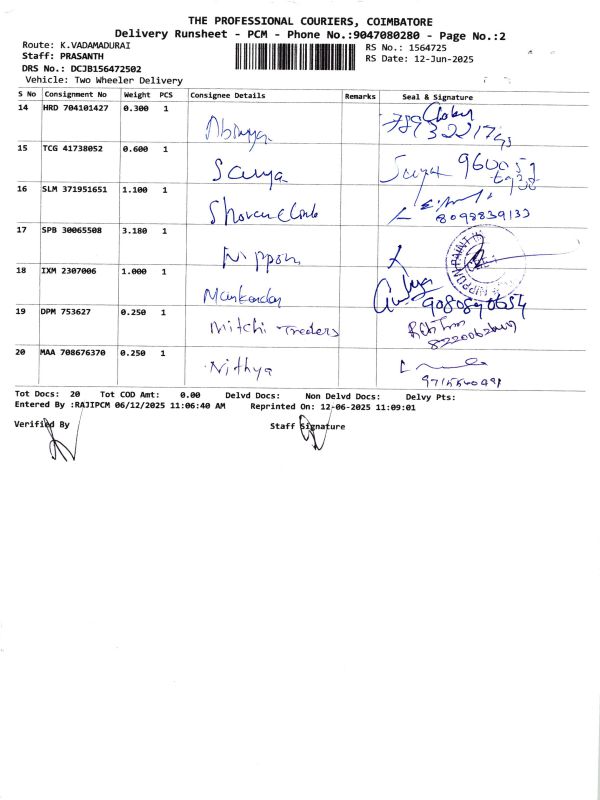 THE PROFESSIONAL COURIERS, COIMBATORE
Delivery Runsheet - PCM - Phone No.:9047080280 - Page No.:2
Route: K.VADAMADURAI RS No.: 1564725
Staff: PRASANTH RS Date: 12-Jun-2025
DRS No.: DCJB156472502
Vehicle: Two Wheeler Delivery
S No Consignment No Weight PCS Consignee Details Remarks Seal & Signature
14 HRD 704101427 0.300 1 Abinaya
15 TCG 41738052 0.600 1 Sarya
16 SLM 371951651 1.100 1 8098839133
17 SPB 30065508 3.180 1 Nippon
18 IXM 2307006 1.000 1 9080890654
19 DPM 753627 0.250 1 Mitchi Traders
20 MAA 708676370 0.250 1 Nithya
Tot Docs: 20 Tot COD Amt: 0.00 Delvd Docs: Non Delvd Docs: Delvy Pts:
Entered By :RAJIPCM 06/12/2025 11:06:40 AM Reprinted On: 12-06-2025 11:09:01
Verified By Staff Signature